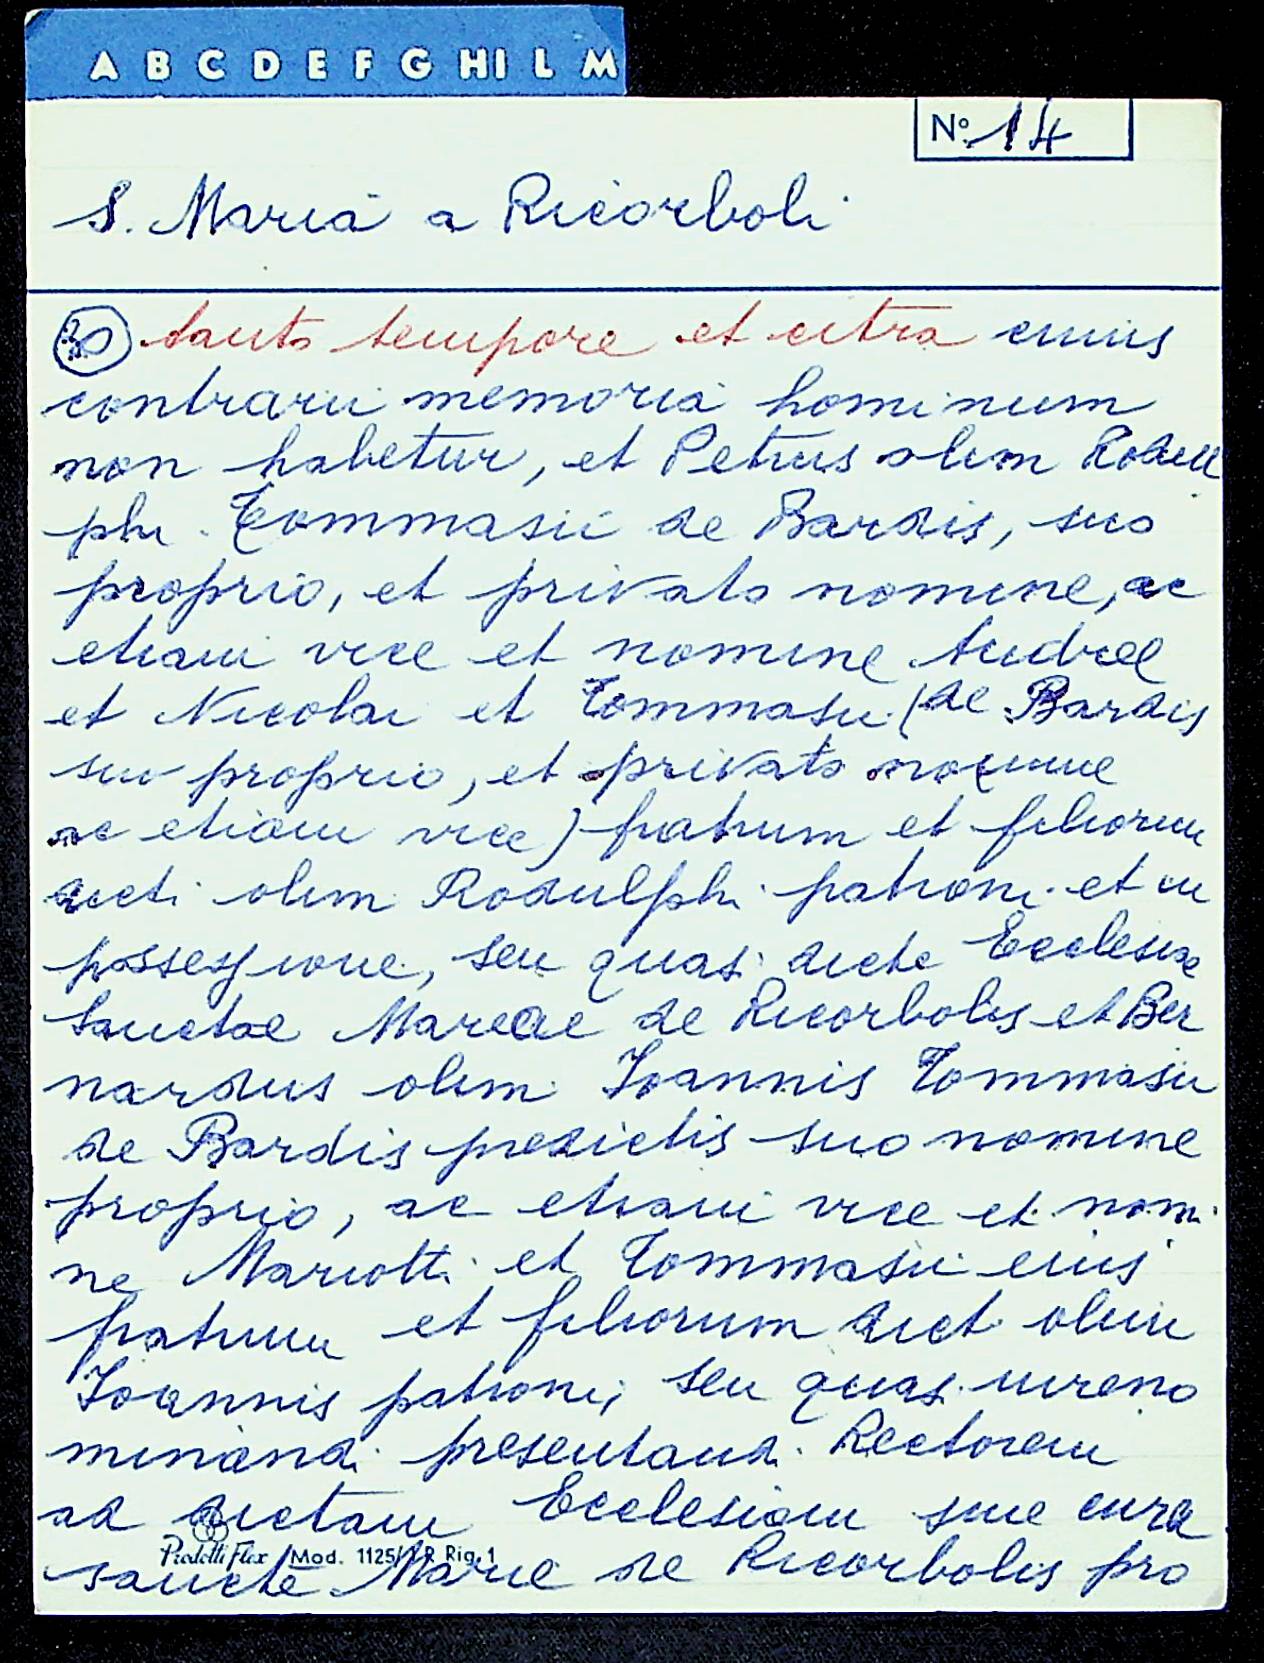 A B C D E F G HI L M
No. 14
S. Maria a Ricorboli
30 tanto tempore et citra cuius
contrarii memoria hominum
non habetur, et Petrus olim Rodul
phi Tommasii de Bardis, suo
proprio, et privato nomine, ac
etiam vice et nomine Andree
et Nicolai et Tommasii (de Bardis
suo proprio, et privato nomine
ac etiam vice) fratrum et filiorum
dicti olim Rodulphi patroni et in
possessione, seu quasi dicte Ecclesiae
Sanctae Mariae de Ricorbolis et Ber
nardus olim Ioannis Tommasii
de Bardis predictis suo nomine
proprio, ac etiam vice et nomi
ne Mariotti et Tommasii eius
fratrum et filiorum dict olim
Ioannis patroni, seu quasi iure no
minandi presentandi Rectorem
ad dictam Ecclesiam sine cura
Prodotti Flex Mod. 1125/ R Rig. 1
sancte Marie de Ricorbolis pro